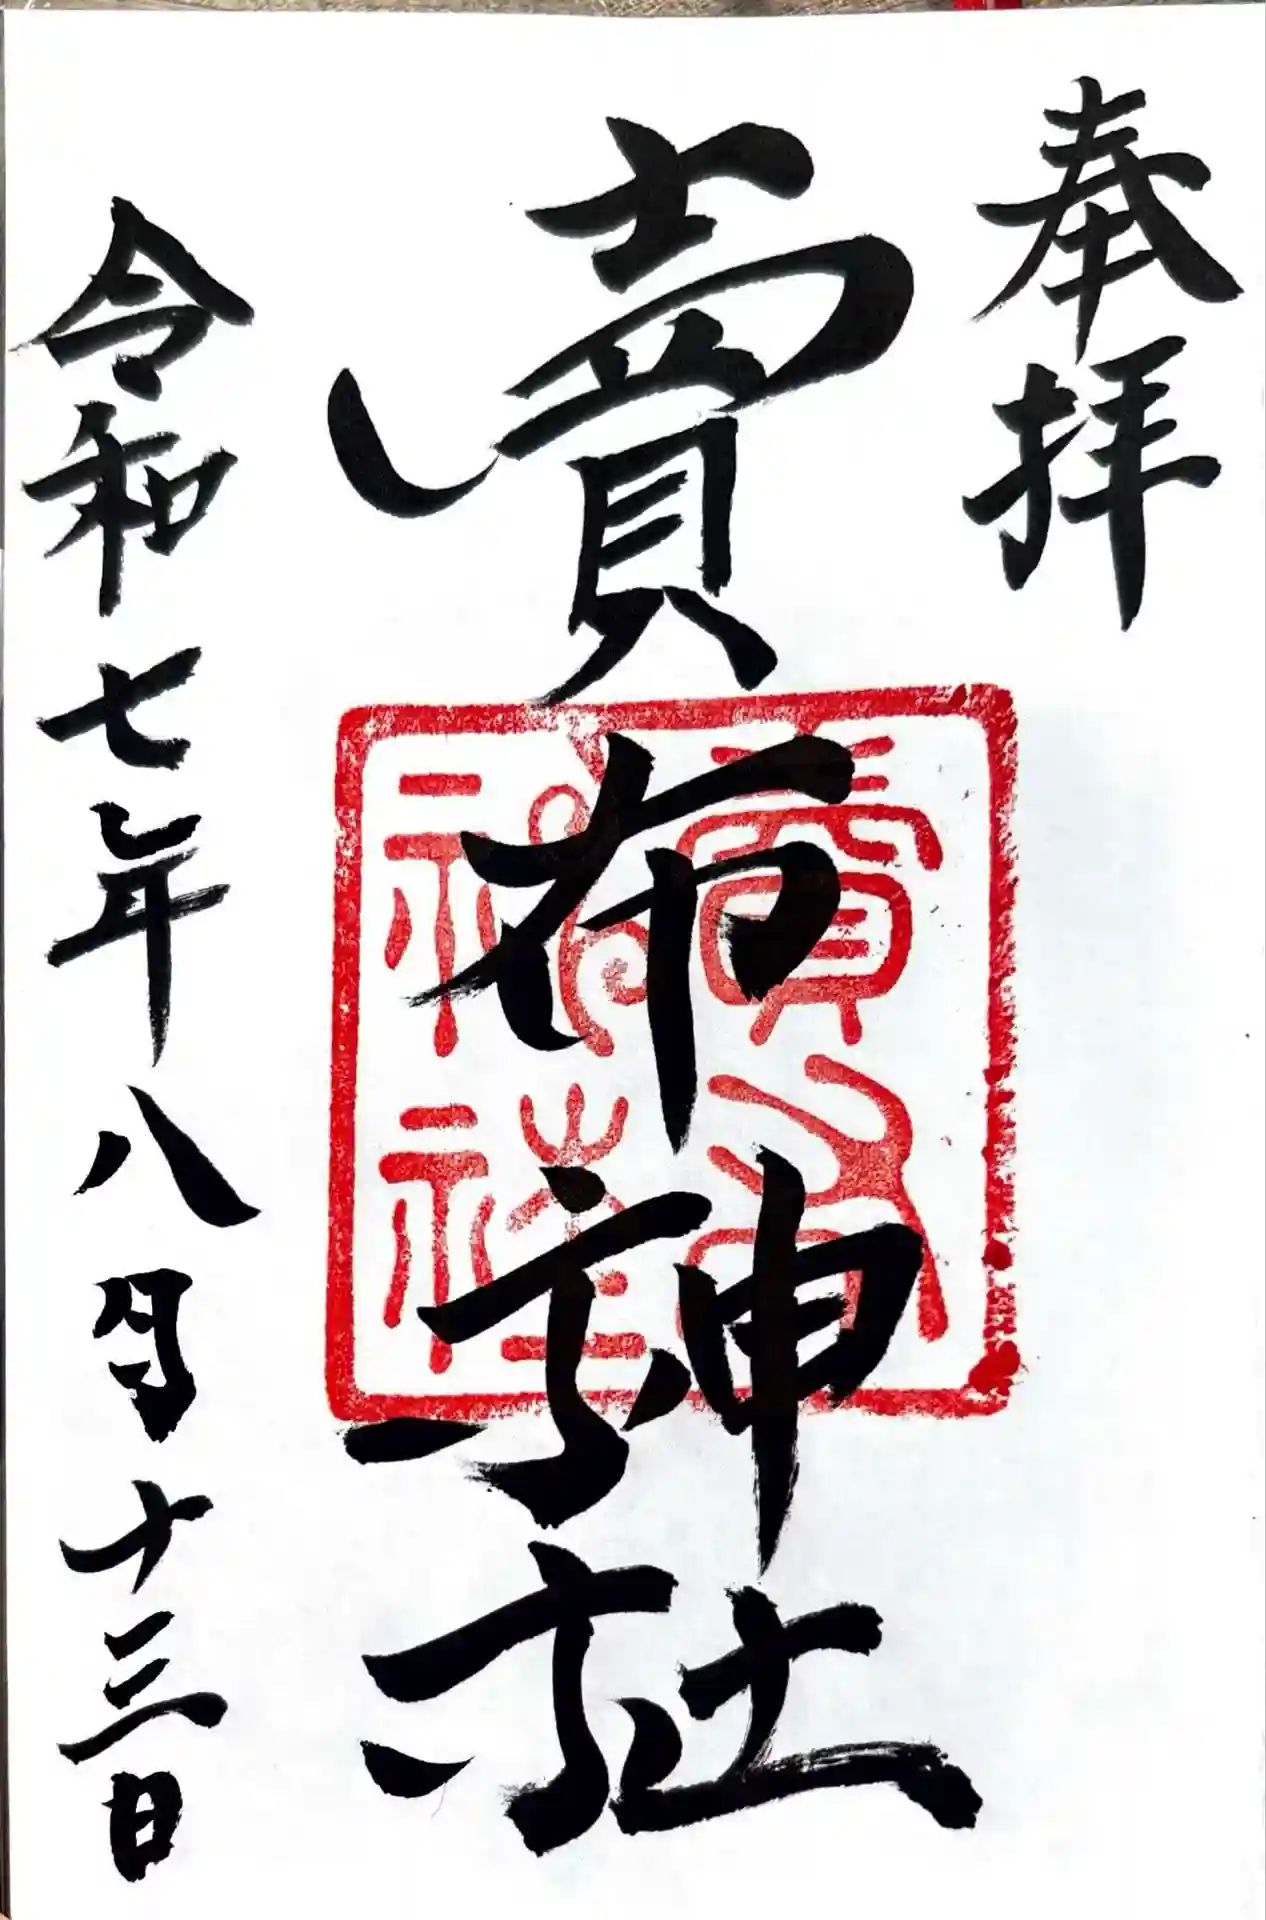 奉拝
賣布神社
賣布
神社
令和七年八月十三日